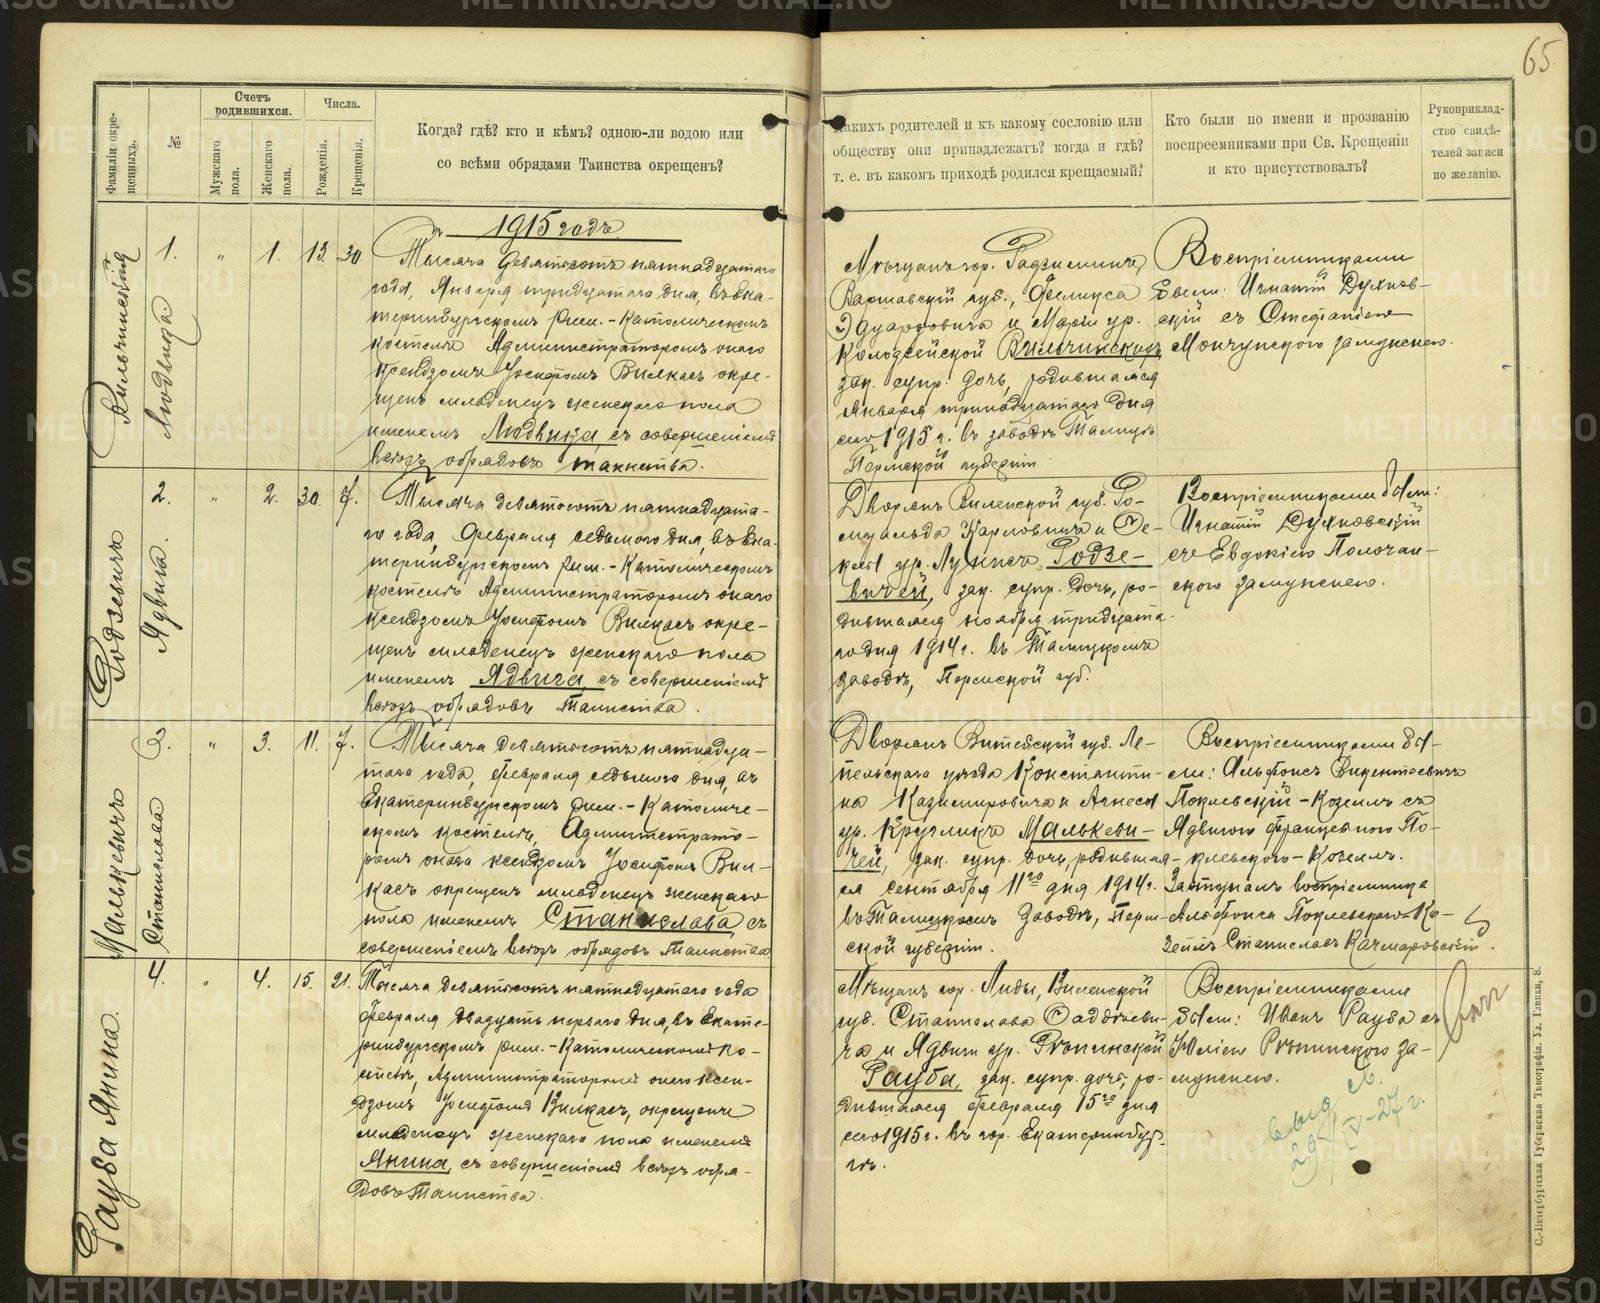 65
Фамиліи окре-
щенныхъ.
№
Счетъ
родившихся.
Мужскаго
пола.
Женскаго
пола.
Числа.
Рожденія.
Крещенія.
Когда? гдѣ? кто и кѣмъ? одною-ли водою или
со всѣми обрядами Таинства окрещенъ?
Какихъ родителей и къ какому сословію или
обществу они принадлежатъ? когда и гдѣ?
т. е. въ какомъ приходѣ родился крещаемый?
Кто были по имени и прозванію
воспреемниками при Св. Крещеніи
и кто присутствовалъ?
Рукоприклад-
ство свидѣ-
телей записи
по желанію.
1915 годъ
Вильчинская
Людвика
1. " 1. 13. 30
Тысяча девятьсотъ пятнадцатаго
года, Января тридцатаго дня, въ Ека-
теринбургскомъ Рим.-Католическомъ
костелѣ Администраторомъ онаго
ксендзомъ Іосифомъ Вилкасъ окре-
щенъ младенецъ женскаго пола
именемъ Людвика, съ совершеніемъ
всѣхъ обрядовъ таинства.
Мѣщанъ гор. Радзимина,
Варшавской губ., Феликса
Эдуардовича и Маріи ур.
Колодзейской Вильчинскихъ
зак. супр. дочь, родившаяся
Января тринадцатаго дня
сего 1915 г. въ заводѣ Талицѣ
Пермской губерніи
Воспріемниками
были: Игнатій Духнов-
скій съ Стефаніею
Мончунскою замужнею.
Родзевичъ
Ядвига.
2. " 2. 30 7.
Тысяча девятьсотъ пятнадцата-
го года, Февраля седьмого дня, въ Ека-
теринбургскомъ Рим.-Католическомъ
костелѣ Администраторомъ онаго
ксендзомъ Іосифомъ Вилкасъ окре-
щенъ младенецъ женскаго пола
именемъ Ядвига, съ совершеніемъ
всѣхъ обрядовъ Таинства.
Дворянъ Виленской губ. Ро-
муальда Карловича и Ѳе-
клы ур. Лукша Родзе-
вичей, зак. супр. дочь, ро-
дившаяся ноября тридцата-
го дня 1914 г. въ Талицкомъ
заводѣ, Пермской губ.
Воспріемниками были:
Игнатій Духновскій
съ Евдокіею Полочан-
скою замужнею.
Малькевичъ
Станислава
3. " 3. 11. 7.
Тысяча девятьсотъ пятнадца-
таго года, Февраля седьмого дня, въ
Екатеринбургскомъ Рим.-Католиче-
скомъ костелѣ, Администрато-
ромъ онаго ксендзомъ Іосифомъ Вил-
касъ окрещенъ младенецъ женскаго
пола именемъ Станислава, съ
совершеніемъ всѣхъ обрядовъ Таинства
Дворянъ Витебской губ. Ле-
пельскаго уѣзда Константи-
на Казимировича и Агнесы
ур. Кругликъ Малькеви-
чей, зак. супр. дочь, родивша-
яся сентября 11го дня 1914 г.
въ Талицкомъ Заводѣ, Перм-
ской губерніи.
Воспріемниками бы-
ли: Альфонсъ Викентьевичъ
Поклевскій-Козеллъ съ
Ядвигою Францевною По-
клевскою-Козеллъ.
Заступалъ воспріемника
Альфонса Поклевскаго-Ко-
зеллъ Станиславъ Качмаровскій.
Рауба Янина.
4. " 4. 15. 21.
Тысяча девятьсотъ пятнадцатаго года
Февраля двадцать перваго дня, въ Екате-
ринбургскомъ Рим.-Католическомъ ко-
стелѣ, Администраторомъ онаго ксен-
дзомъ Іосифомъ Вилкасъ, окрещенъ
младенецъ женскаго пола именемъ
Янина, съ совершеніемъ всѣхъ обря-
довъ Таинства.
Мѣщанъ гор. Лиды, Виленской
губ. Станислава Ѳаддѣеви-
ча и Ядвиги ур. Рѣпинской
Рауба, зак. супр. дочь, ро-
дившаяся Февраля 15го дня
сего 1915 г. въ гор. Екатеринбур-
гѣ.
Воспріемниками
были: Иванъ Рауба съ
Юліею Рѣпинскою за-
мужнею.
выд св.
29/IV-27 г.
С.-Петербургская Губернская Типографія. Ул. Глинки, 8.
METRIKI.GASO-URAL.RU